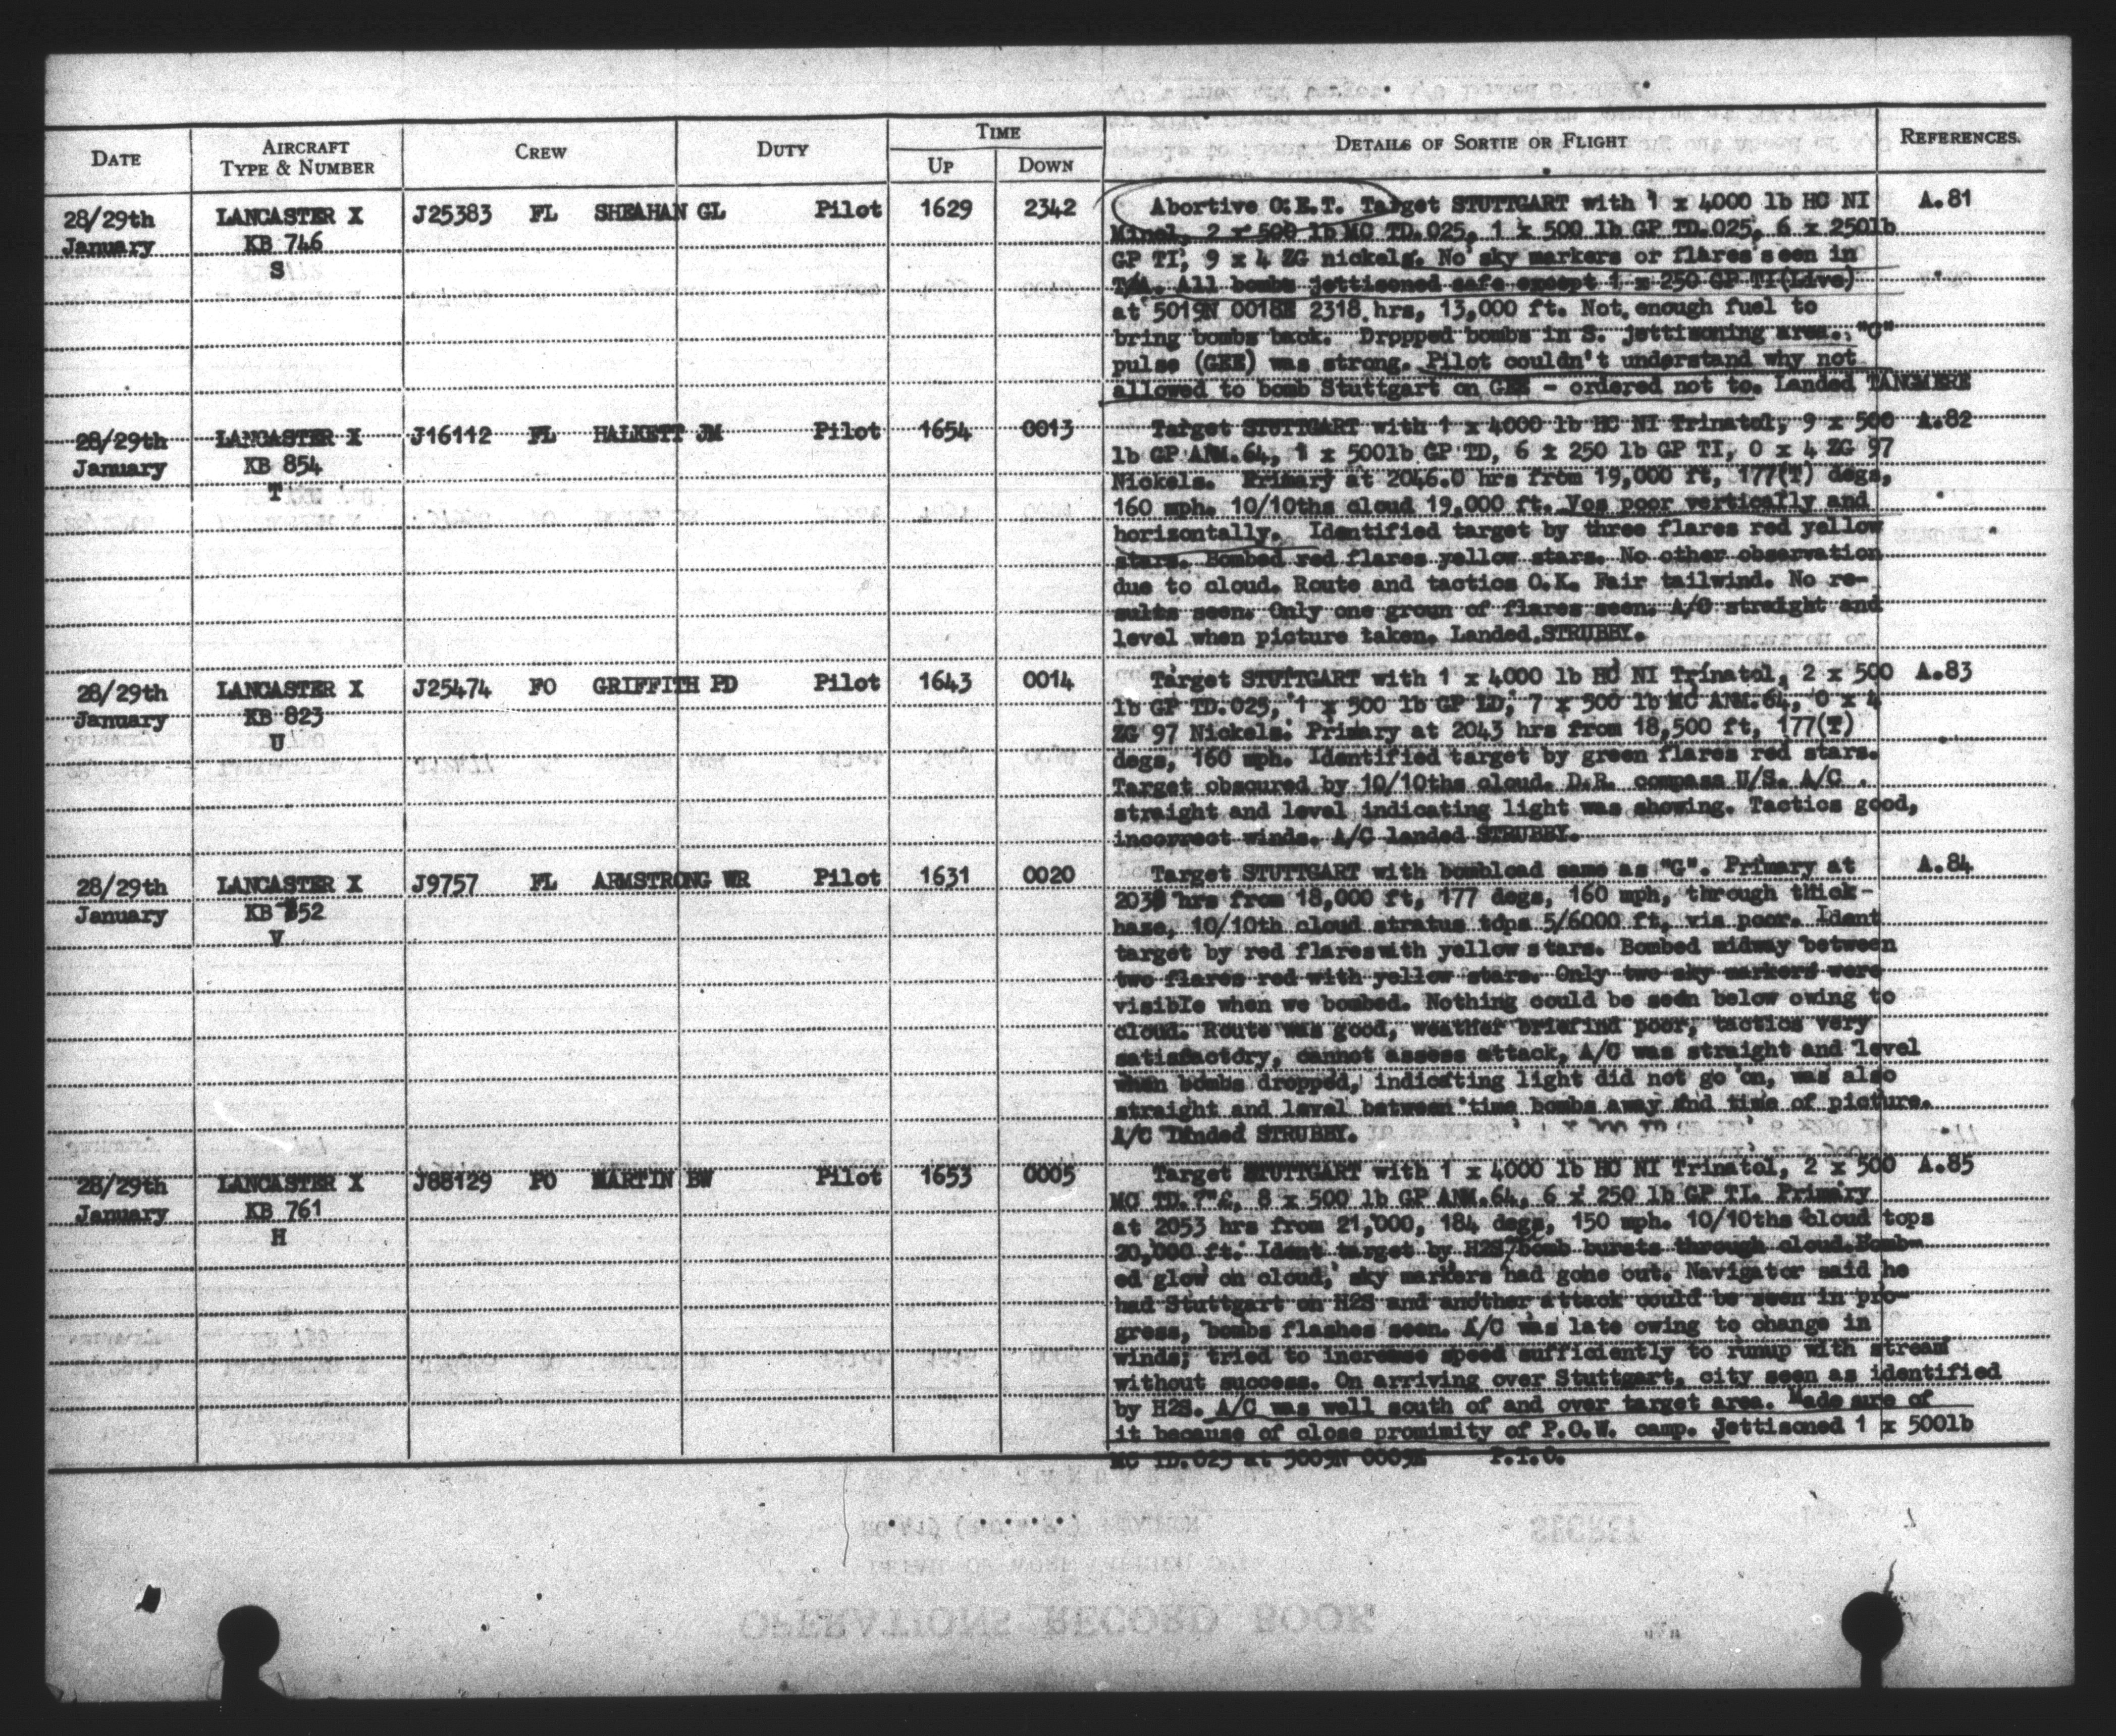 DATE
AIRCRAFT
TYPE & NUMBER
CREW
DUTY
TIME
UP
DOWN
DETAILS OF SORTIE OR FLIGHT
REFERENCES.
28/29th LANCASTER X J25383 FL SHEAHAN GL Pilot 1629 2342
January KB 746
S
Abortive O.E.T. Target STUTTGART with 1 x 4000 lb HC NI A.81
Minol, 2 x 500 lb MC TD.025, 1 x 500 lb GP TD.025, 6 x 250lb
GP TI, 9 x 4 ZG nickels. No sky markers or flares seen in
T/A. All bombs jettisoned safe except 1 x 250 GP TI(Live)
at 5019N 0018E 2318 hrs, 13,000 ft. Not enough fuel to
bring bombs back. Dropped bombs in S. jettisoning area. "G"
pulse (GEE) was strong. Pilot couldn't understand why not
allowed to bomb Stuttgart on GEE - ordered not to. Landed TANGMERE
28/29th LANCASTER X J16112 FL HALKETT JM Pilot 1654 0013
January KB 854
T
Target STUTTGART with 1 x 4000 lb HC NI Trinatol, 9 x 500 A.82
lb GP ANM.64, 1 x 500lb GP TD, 6 x 250 lb GP TI, 0 x 4 ZG 97
Nickels. Primary at 2046.0 hrs from 19,000 ft, 177(T) degs,
160 mph. 10/10ths cloud 19,000 ft. Vos poor vertically and
horizontally. Identified target by three flares red yellow
stars. Bombed red flares yellow stars. No other observation
due to cloud. Route and tactics O.K. Fair tailwind. No re-
sults seen. Only one groun of flares seen. A/C straight and
level when picture taken. Landed STRUBBY.
28/29th LANCASTER X J25474 FO GRIFFITH PD Pilot 1643 0014
January KB 823
U
Target STUTTGART with 1 x 4000 lb HC NI Trinatol, 2 x 500 A.83
lb GP TD.025, 1 x 500 lb GP LD, 7 x 500 lb MC ANM.64, 0 x 4
ZG 97 Nickels. Primary at 2043 hrs from 18,500 ft, 177(T)
degs, 160 mph. Identified target by green flares red stars.
Target obscured by 10/10ths cloud. D.R. compass U/S. A/C
straight and level indicating light was showing. Tactics good,
incorrect winds. A/C landed STRUBBY.
28/29th LANCASTER X J9757 FL ARMSTRONG WR Pilot 1631 0020
January KB 852
V
Target STUTTGART with bombload same as "G". Primary at A.84
hrs from 18,000 ft, 177 degs, 160 mph, through thick-
haze, 10/10th cloud stratus tops 5/6000 ft, vis poor. Ident
target by red flareswith yellow stars. Bombed midway between
two flares red with yellow stars. Only two sky markers were
visible when we bombed. Nothing could be seen below owing to
cloud. Route was good, weather briefind poor, tactics very
satisfactory, cannot assess attack, A/C was straight and level
when bombs dropped, indicating light did not go on, was also
straight and level between time bombs away and time of picture.
A/C landed STRUBBY.
28/29th LANCASTER X J88129 FO MARTIN BW Pilot 1653 0005
January KB 761
H
Target STUTTGART with 1 x 4000 lb HC NI Trinatol, 2 x 500 A.85
MC TD.?"£, 8 x 500 lb GP ANM.64, 6 x 250 lb GP TI. Primary
at 2053 hrs from 21,000, 184 degs, 150 mph. 10/10ths cloud tops
20,000 ft. Ident target by H2S, bomb bursts through cloud.Bomb-
ed glow on cloud, sky markers had gone out. Navigator said he
had Stuttgart on H2S and another attack could be seen in pro-
gress, bombs flashes seen. A/C was late owing to change in
winds, tried to increase speed sufficiently to runup with stream
without success. On arriving over Stuttgart, city seen as identified
by H2S. A/C was well south of and over target area. Made sure of
it because of close promimity of P.O.W. camp. Jettisoned 1 x 500lb
MC TD.025 at 5005N 0005E P.T.O.